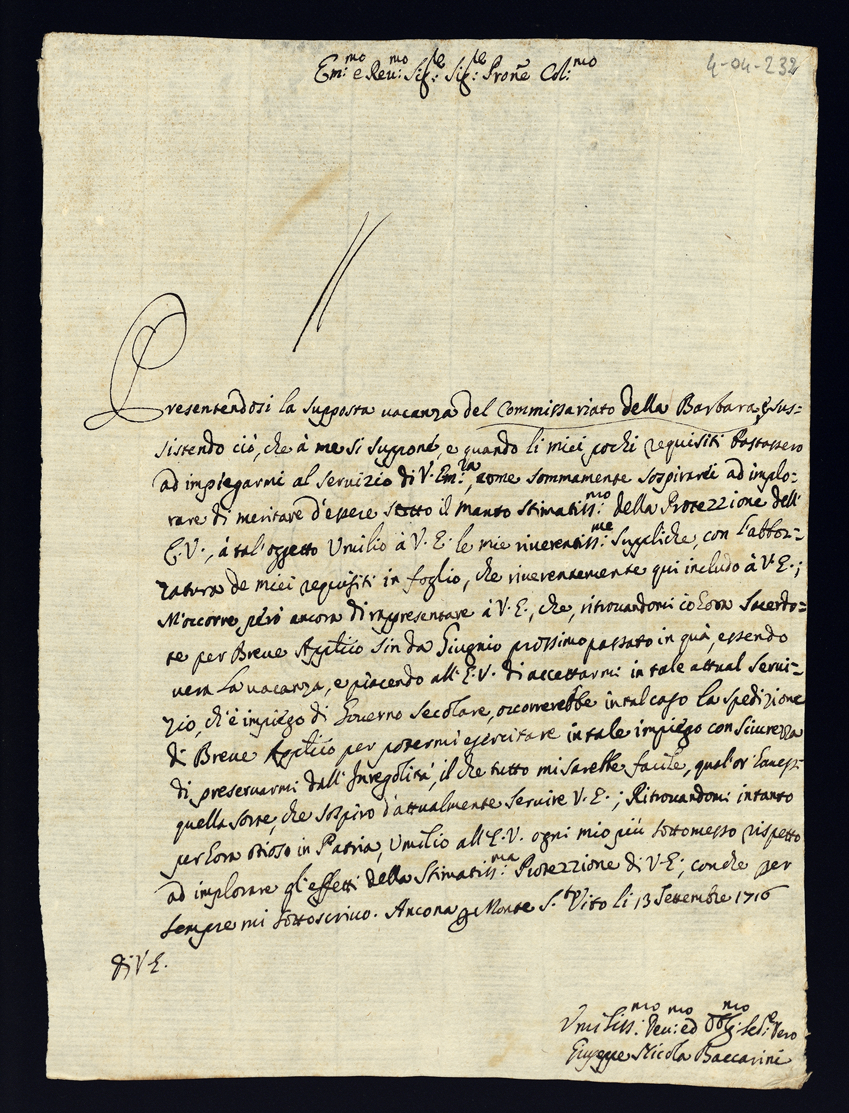 Em:mo e Reu:mo Sig:re Sig:re Prone Col:mo
4-04-232
Presentendosi la supposta uacanza del Commissariato della Barbara, e sus=
sistendo ciò, che à me si suppone, e quando li miei pochi requisiti bastassero
ad impiegarmi al seruizio di V. Em:za, come sommamente sospirarei ad implo=
rare di meritare d'essere sotto il manto stimatiss:mo della Protezzione dell'
E. V., à tal'oggetto Vmilio à V. E. le mie riuerentiss:me Suppliche, con l'abboz=
zatura de miei requisiti in foglio, che riuerentemente qui includo à V. E.;
M'occorre però ancora di rappresentare à V. E., che, ritrouandomi io hora Sacerdo=
te per Breue Applico sin da Giugnio prossimo passato in quà, essendo
uera la uacanza, e piacendo all' E. V. di accettarmi in tale attual serui=
zio, ch'è impiego di Gouerno secolare, occorrerebbe in tal caso la spedizione
di Breue Applico per potermi esercitare in tale impiego con sicurezza
di preseruarmi dall' Irregolità, il che tutto mi sarebbe facile, qual'or hauessi
quella sorte, che sospiro d'attualmente seruire V. E.; Ritrouandomi intanto
per hora otioso in Patria, Vmilio all' E. V. ogni mio più sottomesso rispetto
ad implorare gl'effetti della Stimatiss:ma Protezzione di V. E.; con che per
sempre mi sottoscriuo. Ancona p Monte S.to Vito li 13 Settembre 1716
di V. E.
Vmiliss:mo Deu:mo ed Obbg:mo Sed:e Vero
Giuseppe Nicola Baccarini